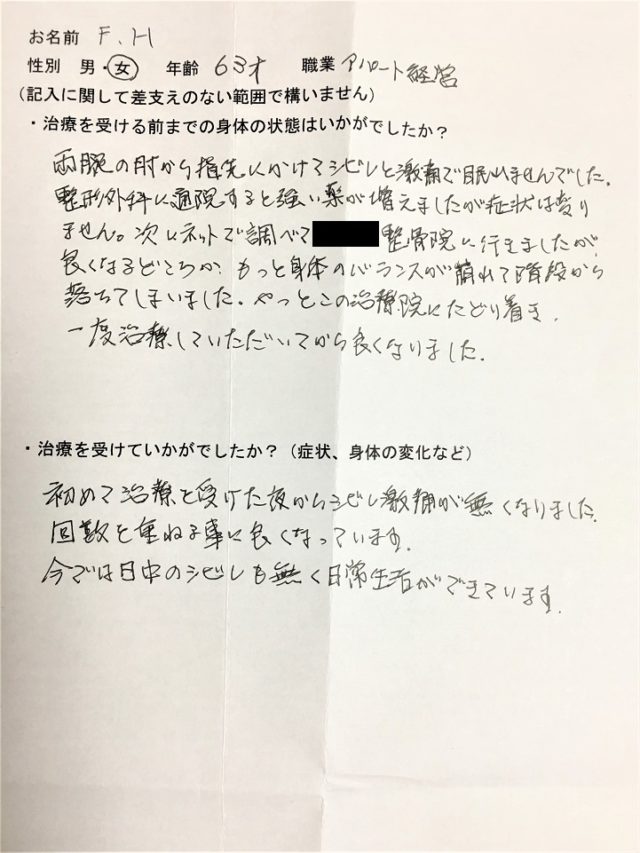 お名前 F.H
性別 男・女 年齢 63才 職業 アパート経営
(記入に関して差支えのない範囲で構いません)
・治療を受ける前までの身体の状態はいかがでしたか？
両腕の肘から指先にかけてシビレと激痛で眠れませんでした。
整形外科に通院すると強い薬が増えましたが症状は変り
ません。次にネットで調べて 整骨院に行きましたが
良くなるどころか、もっと身体のバランスが崩れて階段から
落ちてしまいました。やっとこの治療院にたどり着き、
一度治療していただいてから良くなりました。
・治療を受けていかがでしたか？（症状、身体の変化など）
初めて治療を受けた夜からシビレ激痛が無くなりました。
回数を重ねる事に良くなっています。
今では日中のシビレも無く日常生活ができています。